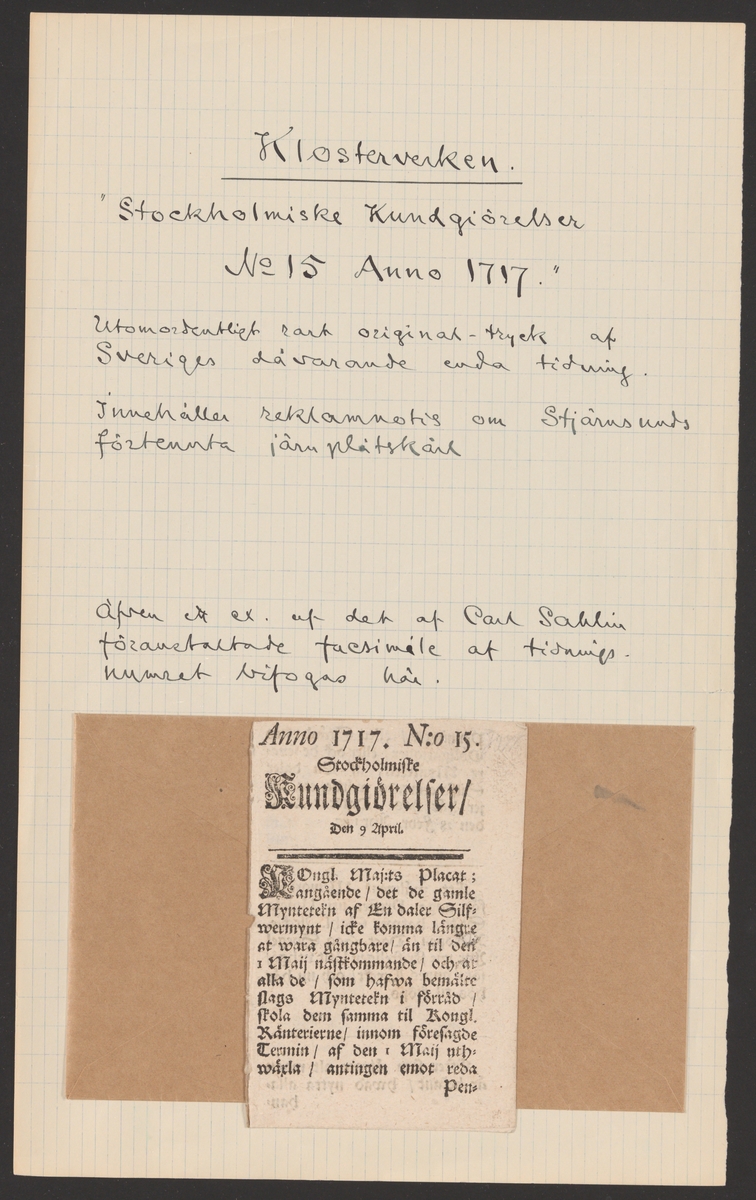 Klosterverken.
"Stockholmiske Kundgiörelser
No 15 Anno 1717."
Utomordentligt rart original-tryck af
Sveriges dåvarande enda tidning.
Innehåller reklamnotis om Stjärnsunds
förtennta järnplåtskärl
Äfven ett ex. af det af Carl Sahlin
föranstaltade facsimile af tidnings-
numret bifogas här.
Anno 1717. N:o 15.
Stockholmiske
Kundgiörelser/
Den 9 April.
KOngl. Maj:ts Placat;
angående/ det de gamle
Myntetekn af En daler Silf-
wermynt / icke komma längre
at wara gångbare/ än til den
1 Maij nästkommande/ och at
alla de / som hafwa bemälte
slags Myntetekn i förråd /
skola dem samma til Kongl.
Ränterierne/ innom föresagde
Termin/ af den 1 Maij uth-
wäxla / antingen emot reda
Pen-